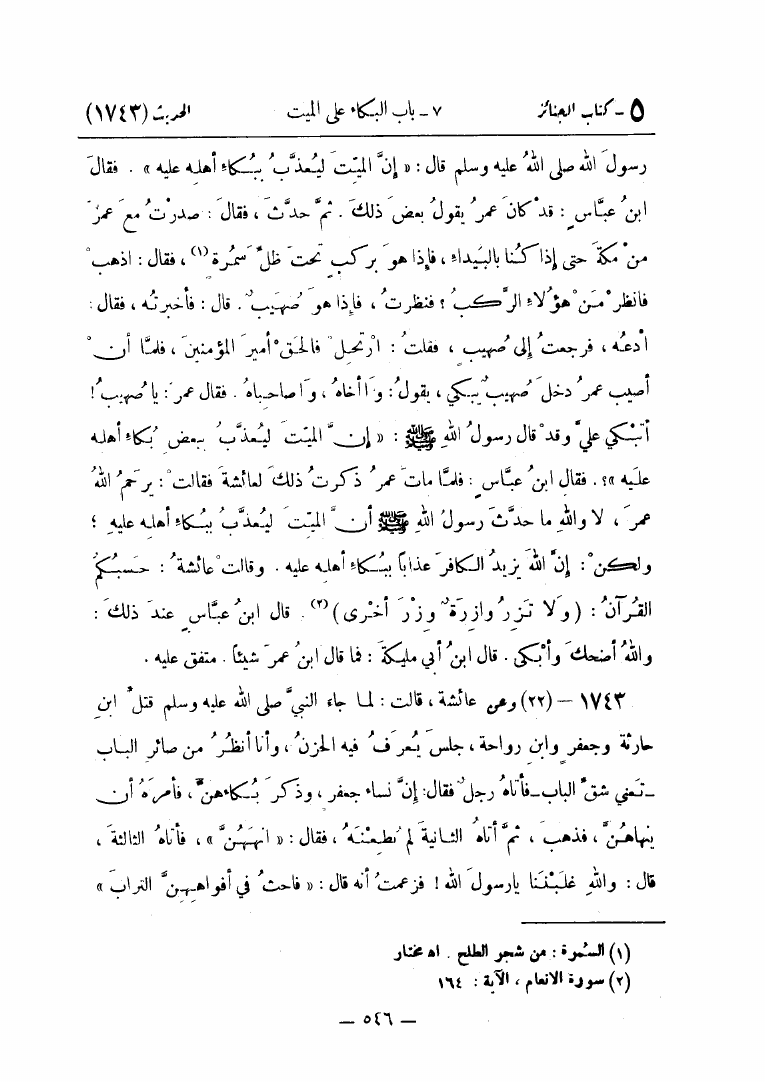 ٥ - كتاب الجنائز ٧ - باب البكاء على الميت الحديث (١٧٤٣)
رسولَ الله صلى اللهُ عليه وسلم قال: « إنَّ الميّتَ ليُعذَّبُ ببُكاءِ أهلهِ عليه » . فقالَ
ابنُ عبَّاسٍ: قدْ كانَ عمرُ يقولُ بعضَ ذلكَ . ثمَّ حدَّثَ ، فقالَ: صدرْتُ معَ عمرَ
منْ مكةَ حتى إذا كُنا بالبَيداءِ ، فإذا هوَ بركبٍ تحتَ ظلِّ سَمُرة (١) ، فقال: اذهبْ
فانظرْ مَنْ هؤلاءِ الرَّكبُ ؟ فنظرتُ ، فإذا هوَ صُهَيبٌ . قال: فأخبرتُه ، فقال:
ادْعُه ، فرجعتُ إلى صُهيبٍ ، فقلتُ: ارْتحِلْ فالحَقْ أميرَ المؤمنينَ ، فلمَّا أنْ
أصيب عمرُ دخلَ صُهيبٌ يبْكي ، يقولُ: وَاأخاهُ ، وَاصاحباهُ . فقال عمرُ: يا صُهيبُ !
أتَبْكي عليَّ وقدْ قال رسولُ اللهِ ﷺ: « إنَّ الميّتَ ليُعذَّبُ ببعضِ بُكاءِ أهلهِ
عليه »؟. فقال ابنُ عبَّاسٍ: فلمَّا ماتَ عمرُ ذكرتُ ذلكَ لعائشةَ فقالتْ: يرحَمُ اللهُ
عمرَ ، لا واللهِ ما حدَّثَ رسولُ اللهِ ﷺ أنَّ الميّتَ ليُعذَّبُ ببُكاءِ أهلهِ عليهِ ؛
ولكنْ: إنَّ اللهَ يزيدُ الكافرَ عذاباً ببُكاءِ أهلهِ عليه . وقالتْ عائشةُ: حَسبُكُمُ
القُرآنُ: (وَلا تَزِرُ وازِرَةٌ وِزْرَ أخْرى) (٢) . قال ابنُ عبَّاسٍ عندَ ذلكَ:
واللهُ أضحكَ وأبْكى . قال ابنُ أبي مليكةَ: فما قال ابنُ عمرَ شيئاً . متفق عليه .
١٧٤٣ - (٢٢) وعن عائشة ، قالت: لما جاء النبيَّ صلى الله عليه وسلم قتلُ ابنِ
حارثة وجعفرٍ وابنِ رواحة ، جلسَ يُعرَفُ فيه الحزنُ ، وأنا أنظُرُ من صائرِ الباب
- تعني شقَّ الباب - فأتاهُ رجلٌ فقال: إنَّ نساءَ جعفر ، وذكرَ بُكاءَهنَّ ، فأمرَهُ أن
ينهاهُنَّ ، فذهبَ ، ثمَّ أتاهُ الثانيةَ لمْ يُطِعْنَهُ ، فقال: « انهَهُنَّ » ، فأتاهُ الثالثةَ ،
قال: واللهِ غلبْنَنا يارسولَ الله ! فزعمتُ أنه قال: « فاحثُ في أفواههِنَّ الترابَ »
(١) السَّمُرة: من شجر الطلح . اه مختار
(٢) سورة الأنعام ، الآية: ١٦٤
- ٥٤٦ -